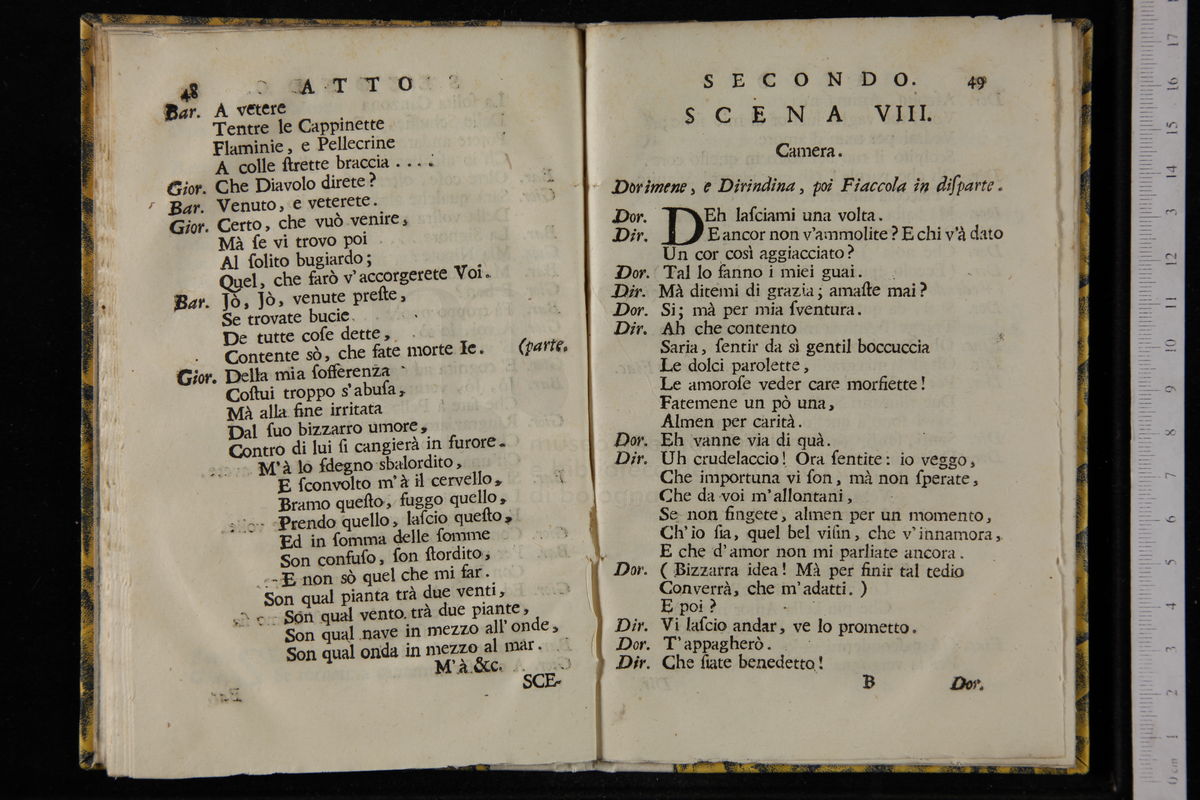 48 ATTO
Bar. A vetere
Tentre le Cappinette
Flaminie, e Pellecrine
A colle ſtrette braccia . . . .
Gior. Che Diavolo direte?
Bar. Venuto, e veterete.
Gior. Certo, che vuò venire,
Mà ſe vi trovo poi
Al ſolito bugiardo;
Quel, che farò v'accorgerete Voi.
Bar. Jò, Jò, venute preſte,
Se trovate bucie
De tutte coſe dette,
Contente sò, che fate morte Ie. (parte.
Gior. Della mia ſofferenza
Coſtui troppo s'abuſa,
Mà alla fine irritata
Dal ſuo bizzarro umore,
Contro di lui ſi cangierà in furore.
M'à lo ſdegno sbalordito,
E ſconvolto m'à il cervello,
Bramo queſto, fuggo quello,
Prendo quello, laſcio queſto,
Ed in ſomma delle ſomme
Son confuſo, ſon ſtordito,
E non sò quel che mi far.
Son qual pianta trà due venti,
Son qual vento trà due piante,
Son qual nave in mezzo all'onde,
Son qual onda in mezzo al mar.
M'à &c.
SCE-
SECONDO. 49
SCENA VIII.
Camera.
Dorimene, e Dirindina, poi Fiaccola in diſparte.
Dor. DEh laſciami una volta.
Dir. E ancor non v'ammolite? E chi v'à dato
Un cor così aggiacciato?
Dor. Tal lo fanno i miei guai.
Dir. Mà ditemi di grazia; amaſte mai?
Dor. Si; mà per mia ſventura.
Dir. Ah che contento
Saria, ſentir da sì gentil boccuccia
Le dolci parolette,
Le amoroſe veder care morfiette!
Fatemene un pò una,
Almen per carità.
Dor. Eh vanne via di quà.
Dir. Uh crudelaccio! Ora ſentite: io veggo,
Che importuna vi ſon, mà non ſperate,
Che da voi m'allontani,
Se non fingete, almen per un momento,
Ch'io ſia, quel bel viſin, che v'innamora,
E che d'amor non mi parliate ancora.
Dor. ( Bizzarra idea! Mà per finir tal tedio
Converrà, che m'adatti. )
E poi?
Dir. Vi laſcio andar, ve lo prometto.
Dor. T'appagherò.
Dir. Che ſiate benedetto!
B Dor.